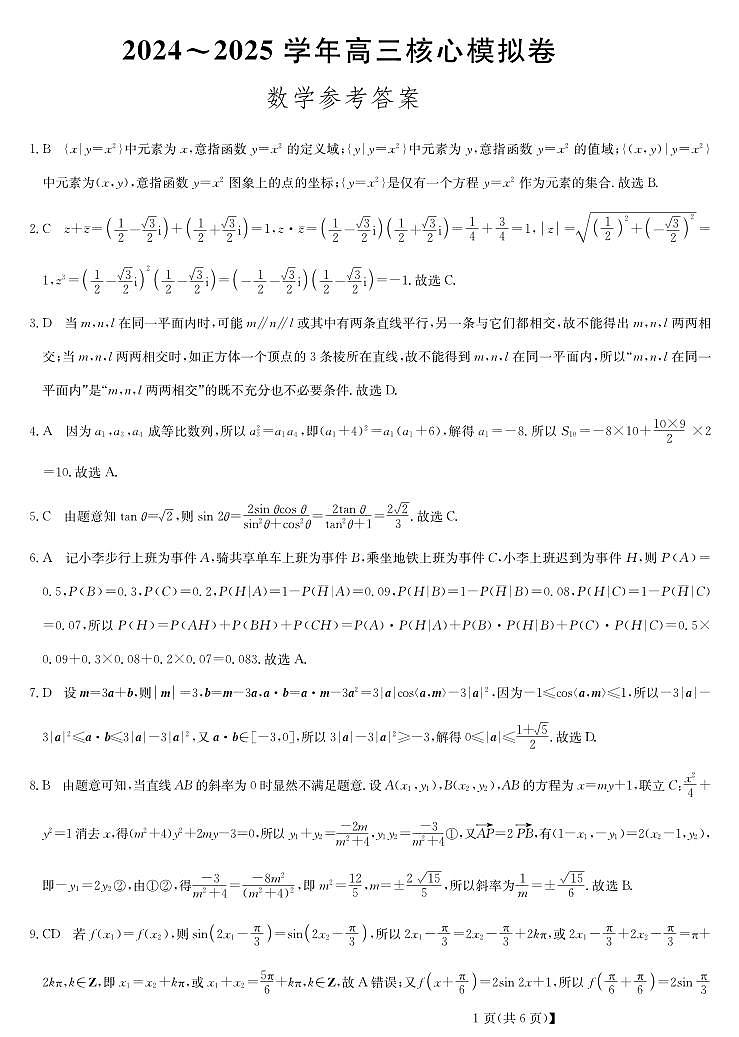 2024～2025 学年高三核心模拟卷
数学参考答案
1. B {x|y=x²}中元素为 x,意指函数 y=x² 的定义域;{y|y=x²}中元素为 y,意指函数 y=x² 的值域;{(x,y)|y=x²}
中元素为(x,y),意指函数 y=x² 图象上的点的坐标;{y=x²}是仅有一个方程 y=x² 作为元素的集合. 故选 B.
2. C z+z̄=(1/2-√3/2 i)+(1/2+√3/2 i)=1,z·z̄=(1/2-√3/2 i)(1/2+√3/2 i)=1/4+3/4=1,|z|=√((1/2)²+(-√3/2)²)=
1,z³=(1/2-√3/2 i)²(1/2-√3/2 i)=(-1/2-√3/2 i)(1/2-√3/2 i)=-1. 故选 C.
3. D 当 m,n,l 在同一平面内时,可能 m∥n∥l 或其中有两条直线平行,另一条与它们都相交,故不能得出 m,n,l 两两相
交;当 m,n,l 两两相交时,如正方体一个顶点的 3 条棱所在直线,故不能得到 m,n,l 在同一平面内,所以“m,n,l 在同一
平面内”是“m,n,l 两两相交”的既不充分也不必要条件. 故选 D.
4. A 因为 a₁,a₃,a₄ 成等比数列,所以 a₃²=a₁a₄,即(a₁+4)²=a₁(a₁+6),解得 a₁=-8. 所以 S₁₀=-8×10+(10×9)/2×2
=10. 故选 A.
5. C 由题意知 tan θ=√2,则 sin 2θ=(2sin θcos θ)/(sin²θ+cos²θ)=(2tan θ)/(tan²θ+1)=2√2/3. 故选 C.
6. A 记小李步行上班为事件 A,骑共享单车上班为事件 B,乘坐地铁上班为事件 C,小李上班迟到为事件 H,则 P(A)=
0.5,P(B)=0.3,P(C)=0.2,P(H|A)=1-P(H̄|A)=0.09,P(H|B)=1-P(H̄|B)=0.08,P(H|C)=1-P(H̄|C)
=0.07,所以 P(H)=P(AH)+P(BH)+P(CH)=P(A)·P(H|A)+P(B)·P(H|B)+P(C)·P(H|C)=0.5×
0.09+0.3×0.08+0.2×0.07=0.083. 故选 A.
7. D 设 m=3a+b,则|m|=3,b=m-3a,a·b=a·m-3a²=3|a|cos⟨a,m⟩-3|a|²,因为-1≤cos⟨a,m⟩≤1,所以-3|a|-
3|a|²≤a·b≤3|a|-3|a|²,又 a·b∈[-3,0],所以 3|a|-3|a|²≥-3,解得 0≤|a|≤(1+√5)/2. 故选 D.
8. B 由题意可知,当直线 AB 的斜率为 0 时显然不满足题意. 设 A(x₁,y₁),B(x₂,y₂),AB 的方程为 x=my+1,联立 C:x²/4+
y²=1 消去 x,得(m²+4)y²+2my-3=0,所以 y₁+y₂=-2m/(m²+4),y₁y₂=-3/(m²+4)①,又AP→=2PB→,有(1-x₁,-y₁)=2(x₂-1,y₂),
即-y₁=2y₂②,由①②,得-3/(m²+4)=-8m²/(m²+4)²,即 m²=12/5,m=±2√15/5,所以斜率为1/m=±√15/6. 故选 B.
9. CD 若 f(x₁)=f(x₂),则 sin(2x₁-π/3)=sin(2x₂-π/3),所以 2x₁-π/3=2x₂-π/3+2kπ,或 2x₁-π/3+2x₂-π/3=π+
2kπ,k∈Z,即 x₁=x₂+kπ,或 x₁+x₂=5π/6+kπ,k∈Z,故 A 错误;又 f(x+π/6)=2sin 2x+1,所以 f(π/6+π/6)=2sin π/3
1 页(共 6 页)】